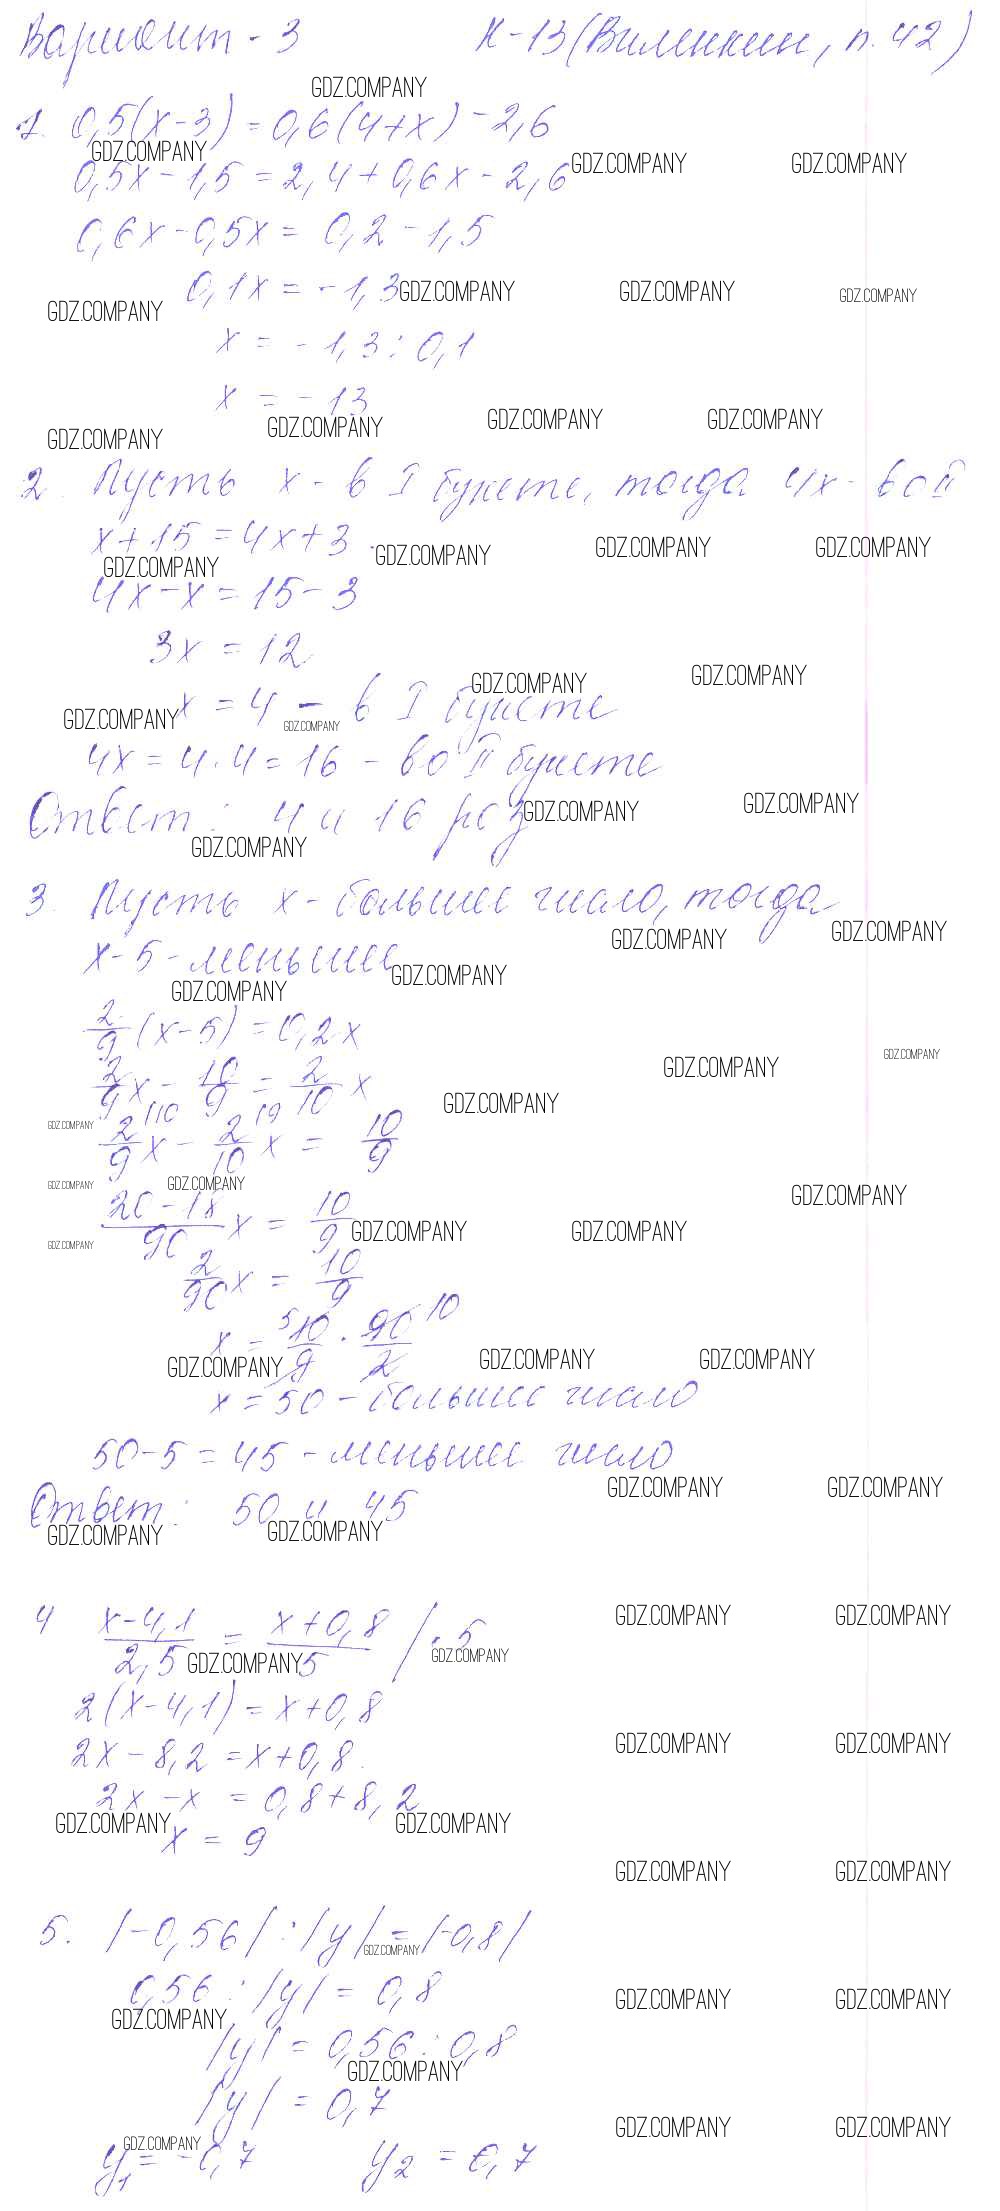 Вариант - 3 К-13 (Виленкин, п. 42)
GDZ.COMPANY
1. 0,5(x-3) = 0,6(4+x) - 2,6
GDZ.COMPANY GDZ.COMPANY GDZ.COMPANY
0,5x - 1,5 = 2,4 + 0,6x - 2,6
0,6x - 0,5x = 0,2 - 1,5
0,1x = - 1,3
GDZ.COMPANY GDZ.COMPANY GDZ.COMPANY GDZ.COMPANY
x = - 1,3 : 0,1
x = - 13
GDZ.COMPANY GDZ.COMPANY GDZ.COMPANY GDZ.COMPANY
2. Пусть x - в I букете, тогда 4x - во II
x + 15 = 4x + 3
GDZ.COMPANY GDZ.COMPANY GDZ.COMPANY GDZ.COMPANY
4x - x = 15 - 3
3x = 12
GDZ.COMPANY GDZ.COMPANY
x = 4 - в I букете
GDZ.COMPANY GDZ.COMPANY
4x = 4 · 4 = 16 - во II букете
Ответ: 4 и 16 роз
GDZ.COMPANY GDZ.COMPANY GDZ.COMPANY
3. Пусть x - большее число, тогда
GDZ.COMPANY GDZ.COMPANY
x - 5 - меньшее
GDZ.COMPANY GDZ.COMPANY
2/9 (x - 5) = 0,2x
GDZ.COMPANY GDZ.COMPANY
2/9 x - 10/9 = 2/10 x
GDZ.COMPANY GDZ.COMPANY
2/9 |10 x - 2/10 |9 x = 10/9
GDZ.COMPANY GDZ.COMPANY GDZ.COMPANY
(20 - 18)/90 x = 10/9
GDZ.COMPANY GDZ.COMPANY GDZ.COMPANY
2/90 x = 10/9
x = 5 10/9 · 90/2 10
GDZ.COMPANY GDZ.COMPANY GDZ.COMPANY
x = 50 - большее число
50 - 5 = 45 - меньшее число
GDZ.COMPANY GDZ.COMPANY
Ответ: 50 и 45
GDZ.COMPANY GDZ.COMPANY
4 (x - 4,1)/2,5 = (x + 0,8)/5 / · 5
GDZ.COMPANY GDZ.COMPANY GDZ.COMPANY GDZ.COMPANY
2(x - 4,1) = x + 0,8
2x - 8,2 = x + 0,8
GDZ.COMPANY GDZ.COMPANY
2x - x = 0,8 + 8,2
GDZ.COMPANY GDZ.COMPANY
x = 9
GDZ.COMPANY GDZ.COMPANY
5. |-0,56| : |y| = |-0,8|
GDZ.COMPANY
0,56 : |y| = 0,8
GDZ.COMPANY GDZ.COMPANY GDZ.COMPANY
|y| = 0,56 : 0,8
GDZ.COMPANY
|y| = 0,7
GDZ.COMPANY GDZ.COMPANY GDZ.COMPANY
y1 = - 0,7 y2 = 0,7